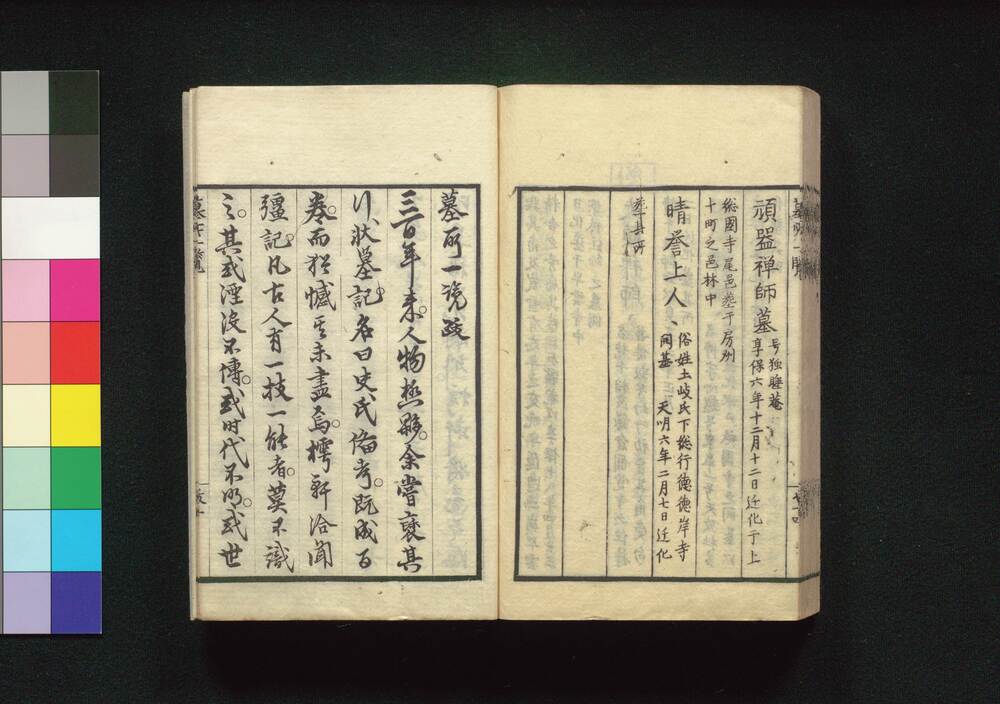 頑器禅師墓
号独睡菴
享保六年十二月十二日迁化于上
総国寺尾邑葬于房刕
十町之邑林中
晴誉上人
俗姓土岐氏下総行徳徳岸寺
開基
天明六年二月七日迁化
葬于其所
墓所一覧跋
三百年来人物極夥余嘗裒其
行状墓記名曰史氏備考既成百
巻而猶憾其未盡焉樗軒洽聞
彊記凡古人有一技一能者莫不識
之其或湮没不傳或时代不明或世
墓所一覧